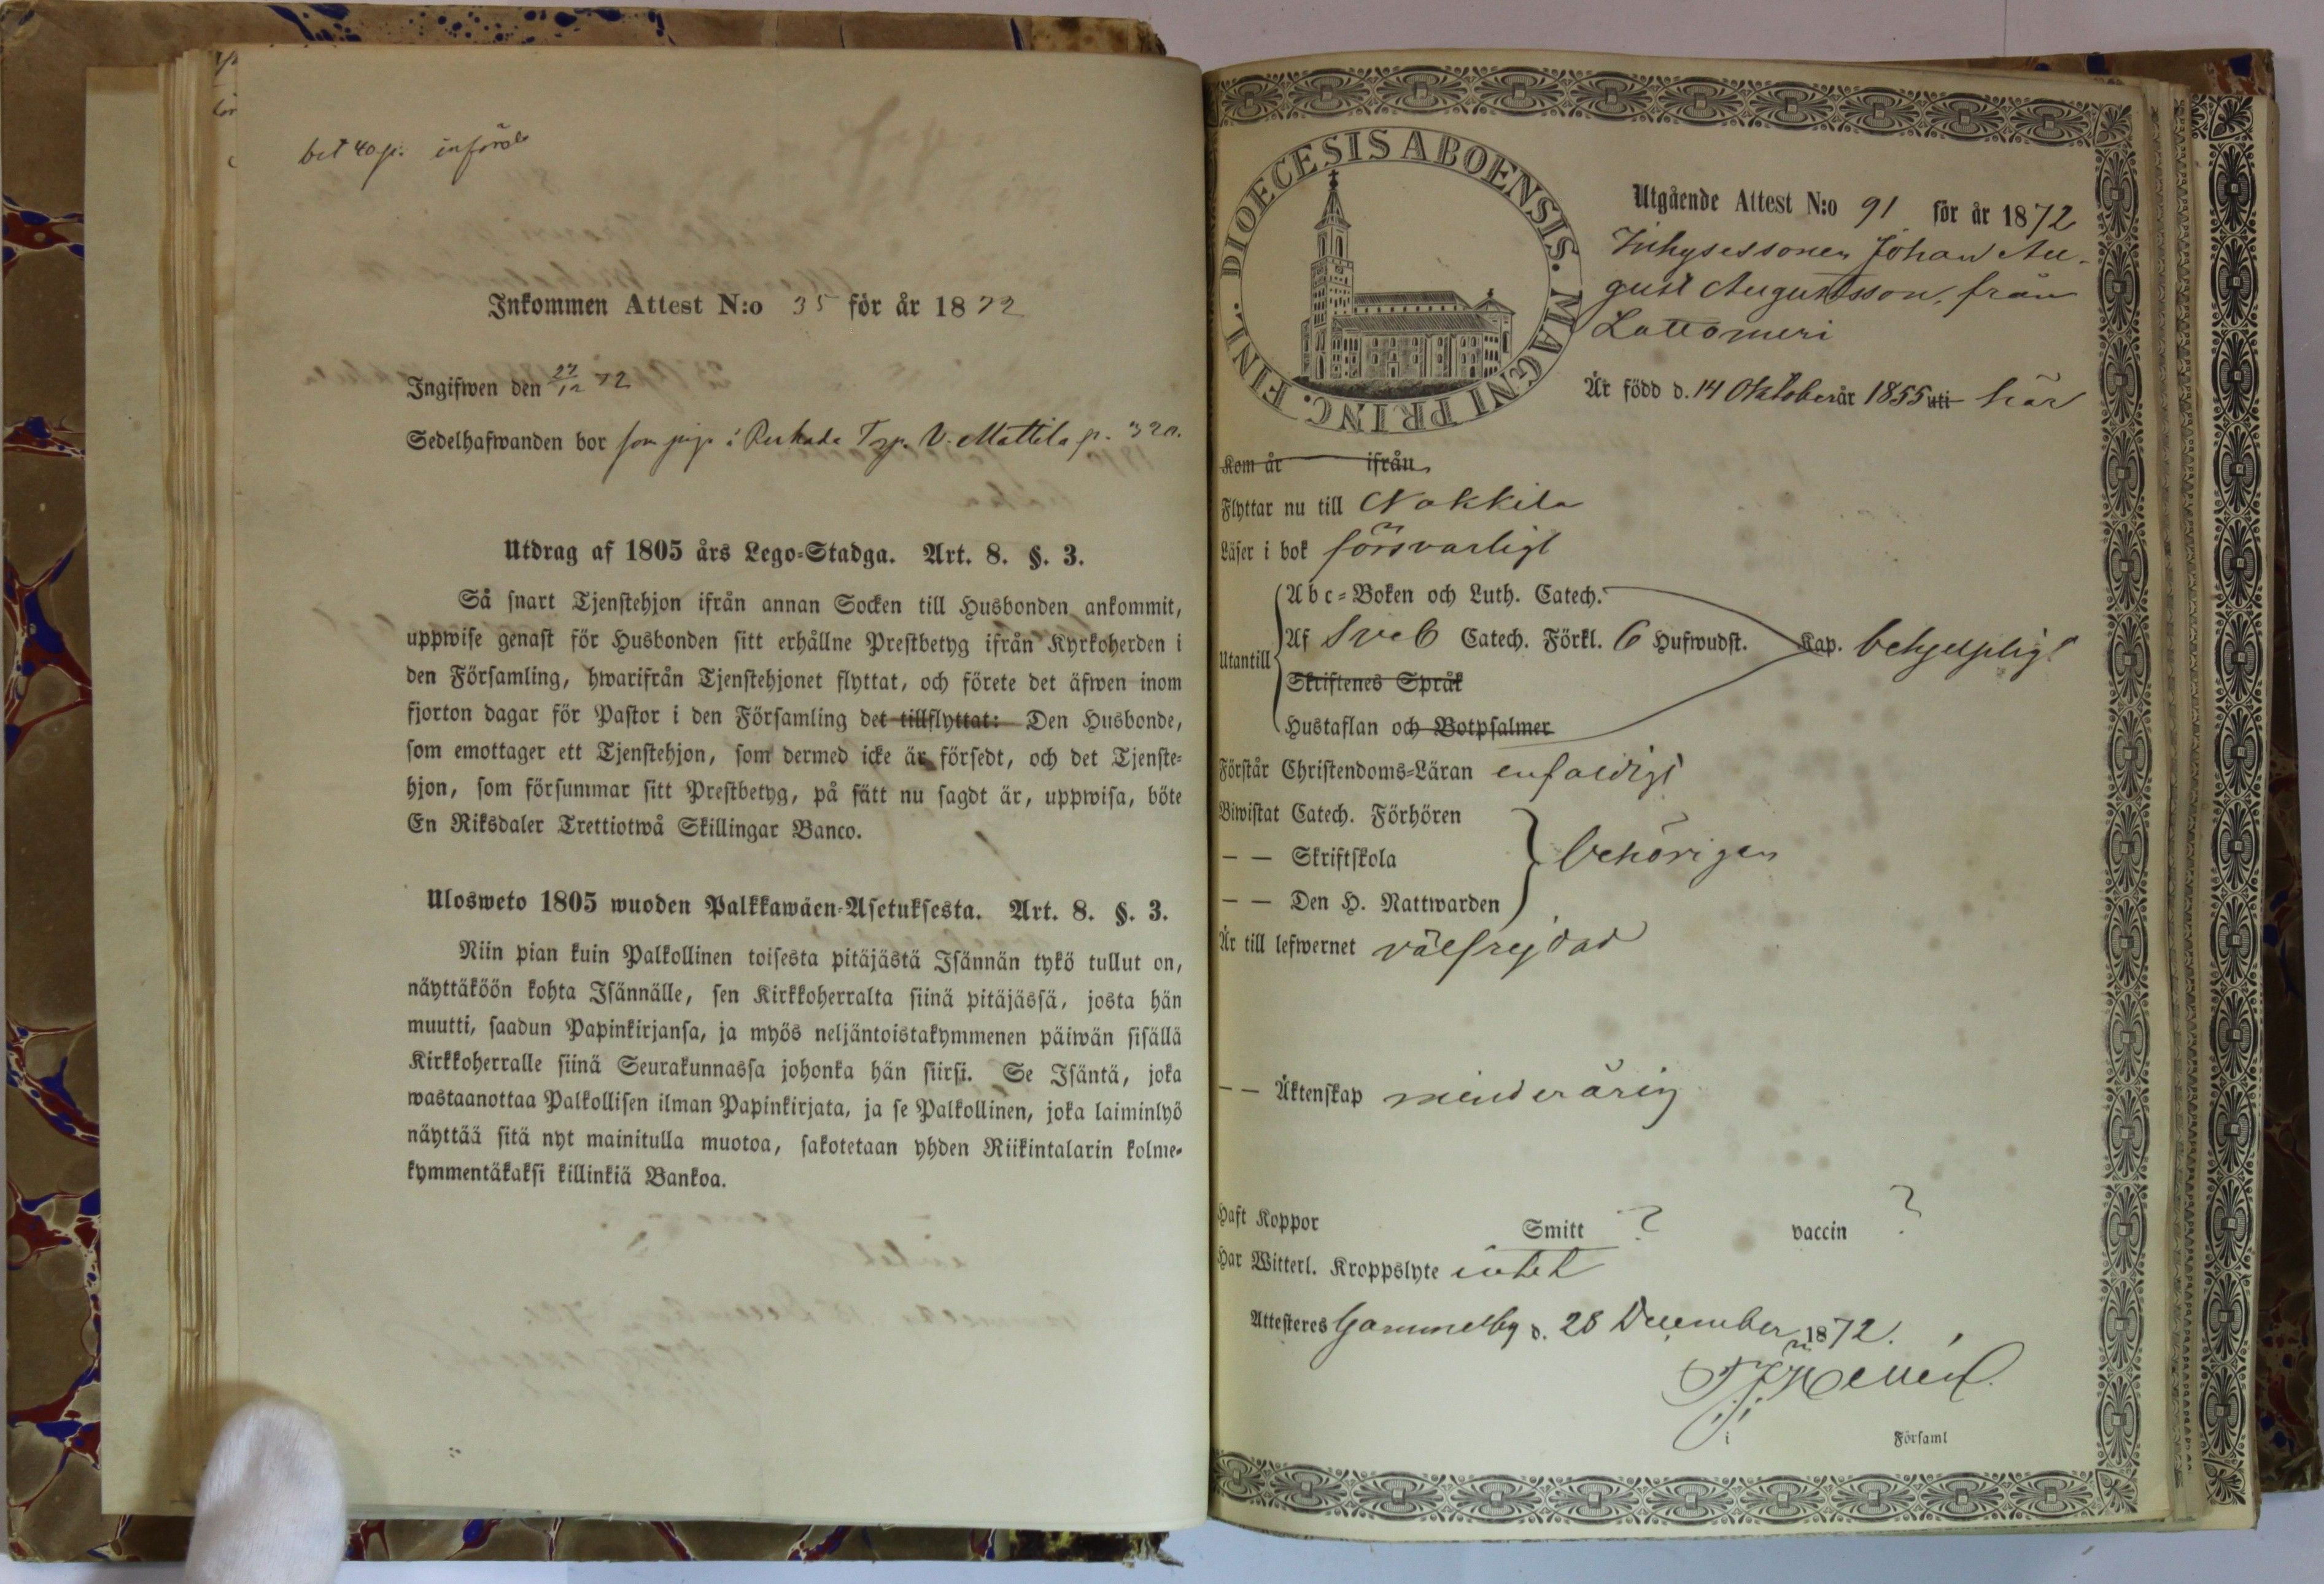 bet 40 p. införd
Inkommen Attest N:o 35 för år 1872
Ingifwen den 27/12 72
Sedelhafwanden bor som piga i Ruskada Torp. V. Mattila p. 320.
Utdrag af 1805 års Lego-Stadga. Art. 8. §. 3.
Så snart Tjenstehjon ifrån annan Socken till Husbonden ankommit,
uppwise genast för Husbonden sitt erhållne Prestbetyg ifrån Kyrkoherden i
den Församling, hwarifrån Tjenstehjonet flyttat, och förete det äfwen inom
fjorton dagar för Pastor i den Församling det tillflyttat: Den Husbonde,
som emottager ett Tjenstehjon, som dermed icke är försedt, och det Tjenste-
hjon, som försummar sitt Prestbetyg, på sätt nu sagdt är, uppwisa, böte
En Riksdaler Trettiotwå Skillingar Banco.
Ulosweto 1805 wuoden Palkkawäen-Asetuksesta. Art. 8. §. 3.
Niin pian kuin Palkollinen toisesta pitäjästä Isännän tykö tullut on,
näyttäköön kohta Isännälle, sen Kirkkoherralta siinä pitäjässä, josta hän
muutti, saadun Papinkirjansa, ja myös neljäntoistakymmenen päiwän sisällä
Kirkkoherralle siinä Seurakunnassa johonka hän siirsi. Se Isäntä, joka
wastaanottaa Palkollisen ilman Papinkirjata, ja se Palkollinen, joka laiminlyö
näyttää sitä nyt mainitulla muotoa, sakotetaan yhden Riikintalarin kolme-
kymmentäkaksi killinkiä Bankoa.
DIOECESIS ABOENSIS. MAGNI PRINC. FINL.
Utgående Attest N:o 91 för år 1872
Inhysessonen Johan Au-
gust Augustsson, från
Lattomeri
Är född d. 14 Oktober år 1855 uti här
Kom år ifrån
Flyttar nu till Nakkila
Läser i bok försvarligt
Utantill
Abc-Boken och Luth. Catech.
Af Sveb Catech. Förkl. 6 Hufwudst. Kap. behjelpligt
Skriftenes Språk
Hustaflan och Botpsalmer
Förstår Christendoms-Läran enfaldigt
Biwistat Catech. Förhören
— — Skriftskola behörigen
— — Den H. Nattwarden
Är till lefwernet välfrejdad
— — Äktenskap minderårig
Haft Koppor Smitt ? vaccin ?
Har Witterl. Kroppslyte intet
Attesteres Gammelby d. 28 December 1872.
i Församl